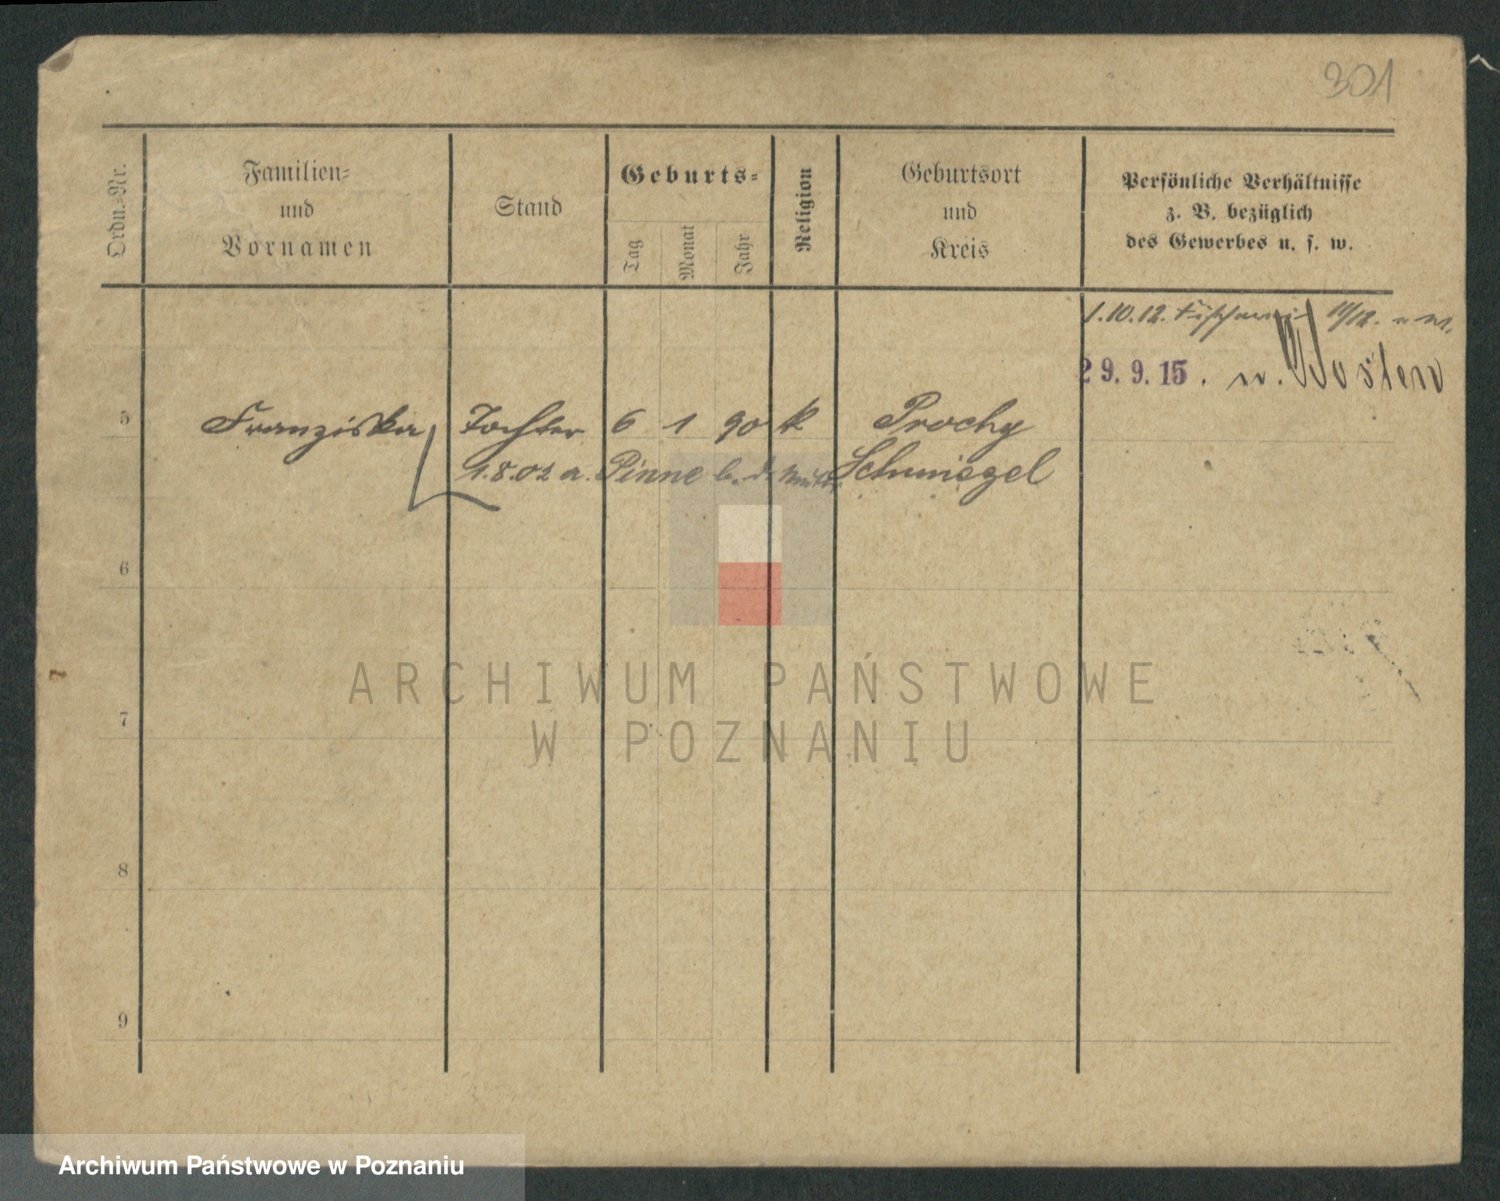 301
Ordn.-Nr.
Familien=
und
Vornamen
Stand
Geburts=
Tag
Monat
Jahr
Religion
Geburtsort
und
Kreis
Persönliche Verhältnisse
z. B. bezüglich
des Gewerbes u. s. w.
1.10.12. 11/12.
29.9.15. n.
5 Franziska Tochter 6 1 90 k Prochy
1.8.02 a. Pinne b. d. Schmiegel
6
7
8
9
ARCHIWUM PAŃSTWOWE
W POZNANIU
Archiwum Państwowe w Poznaniu